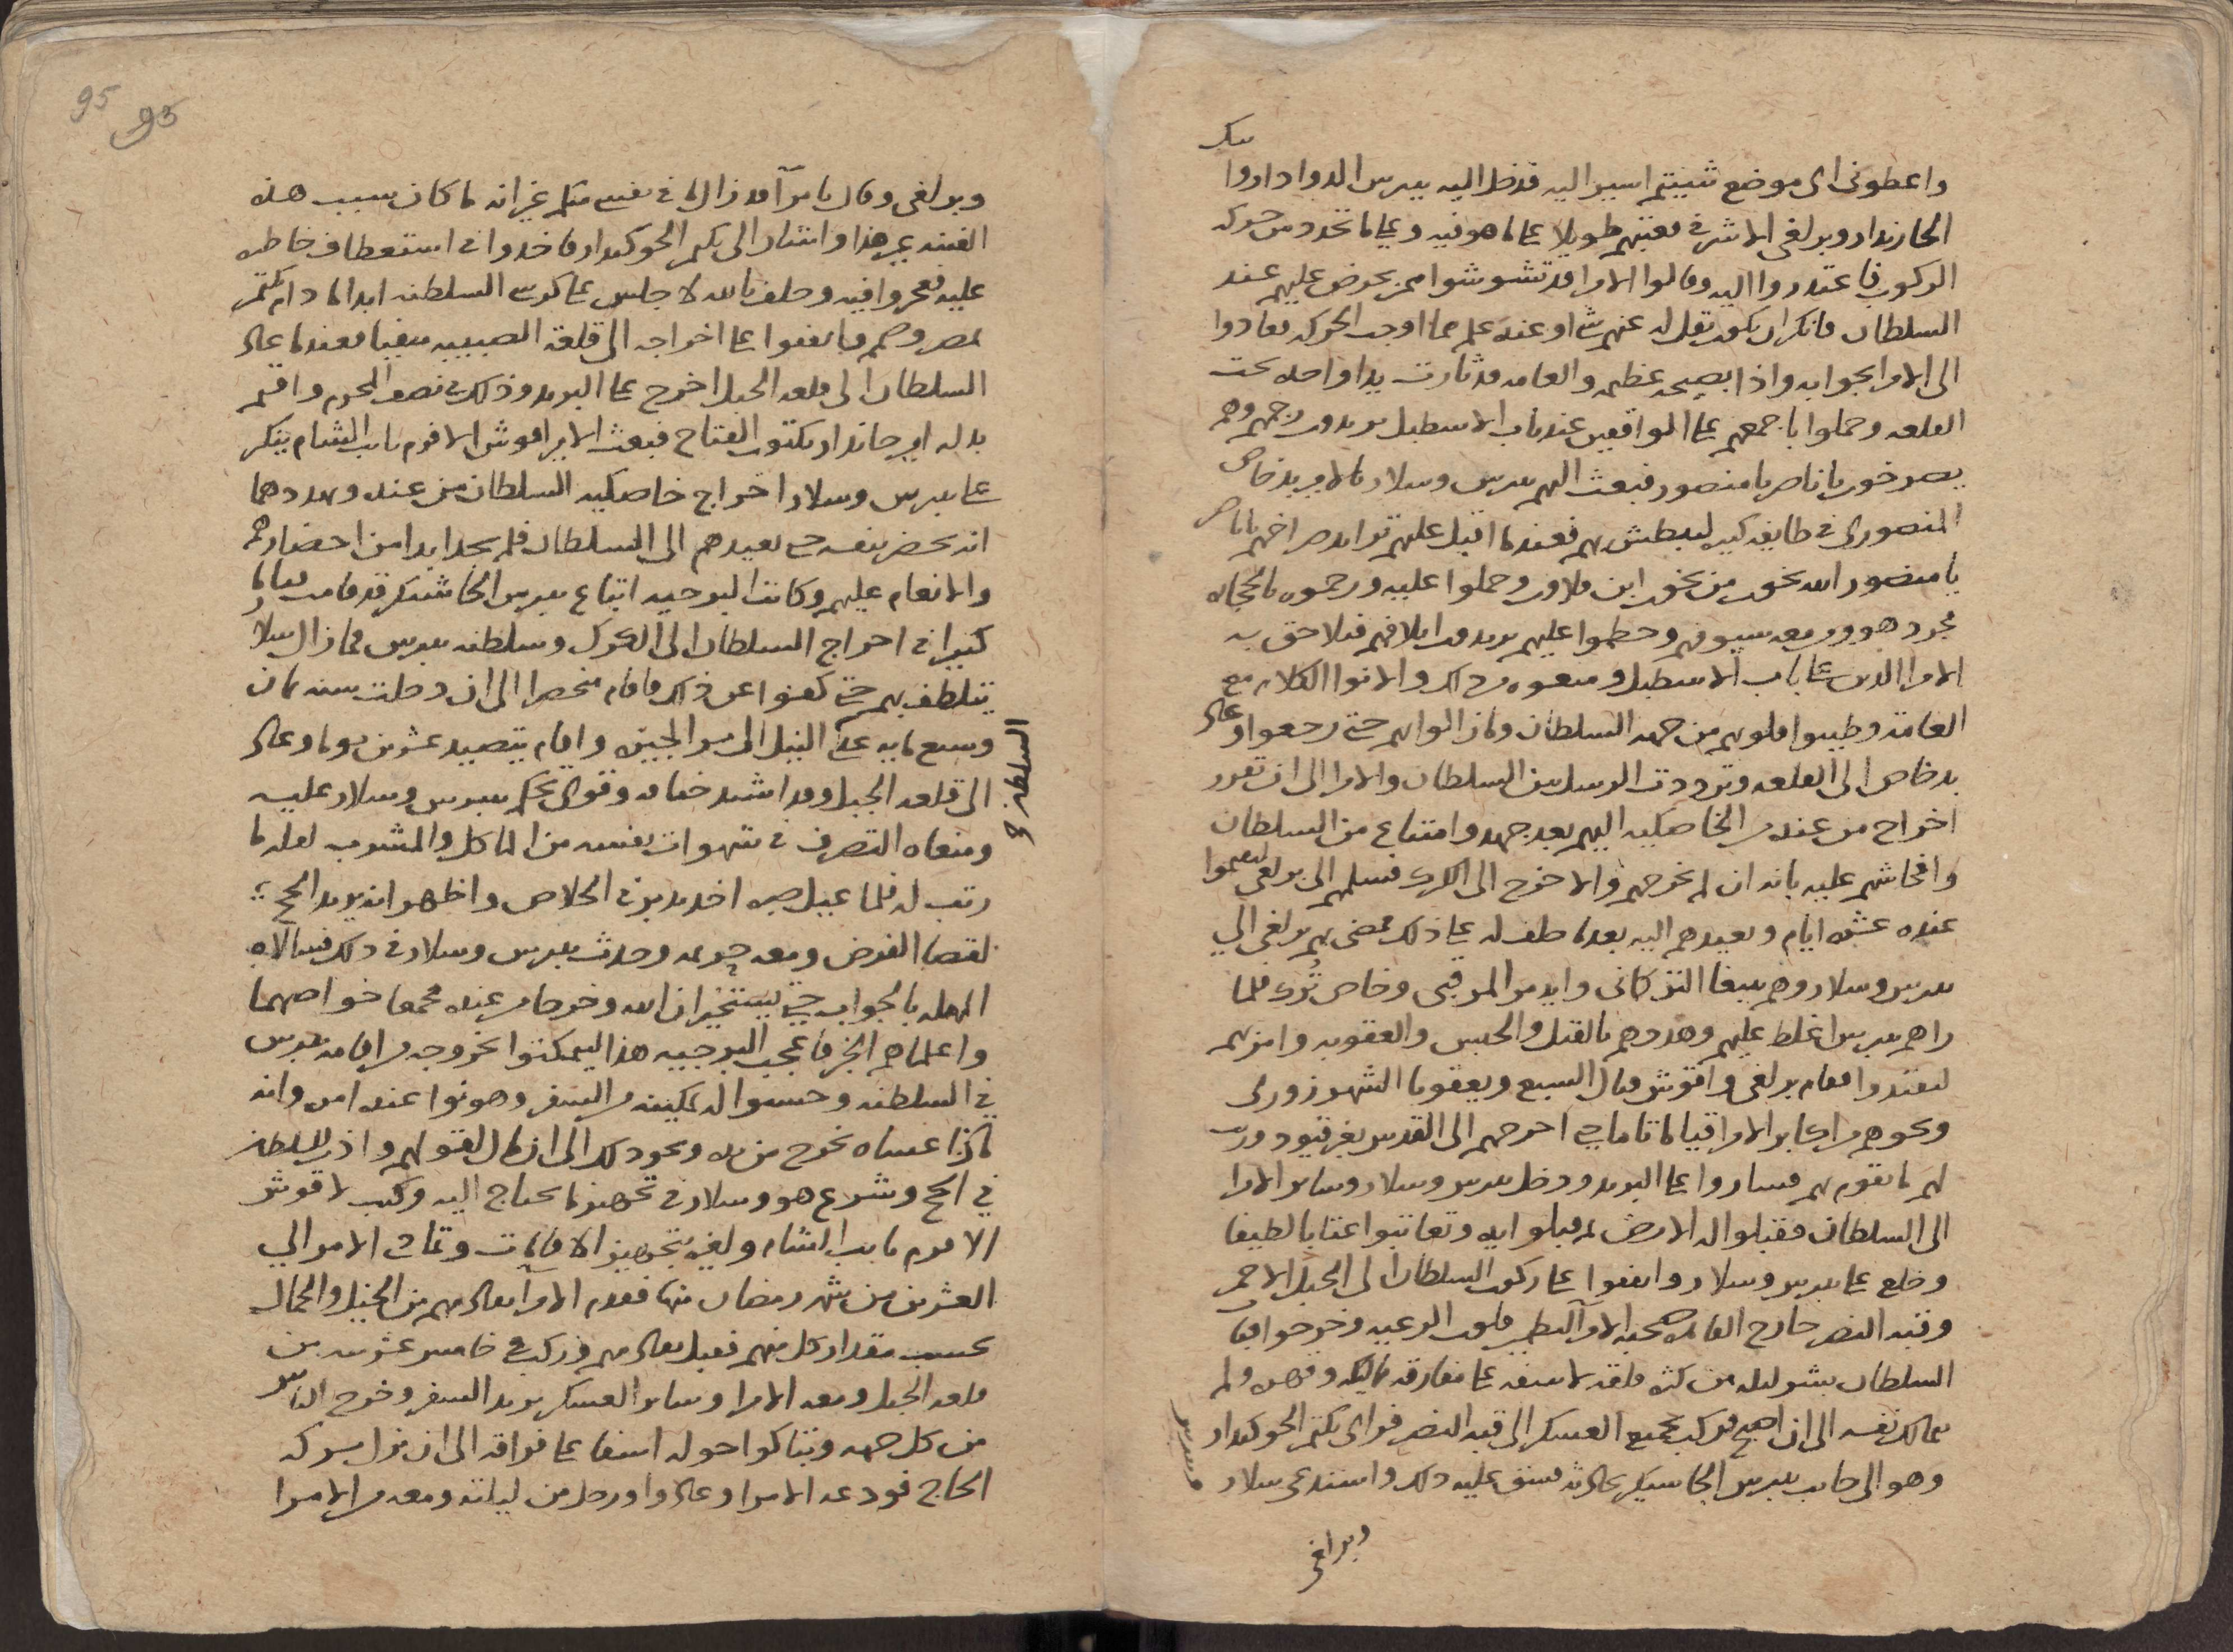 بيك
واعطونى اى موضع شيتم اسير اليه فدخل اليه بيبرس الدوادار وا
الخازندار وبرلغى الاشرفى فعتبهم طويلا على ما هو فيه وعلى ما تجدد من حركه
الركوب فاعتدروا اليه وقالوا الامرا قد تشوشوا ممن يحرض عليهم عند
السلطان فانكر ان يكون نقل له عنهم شيا او عنده علم مما اوجب الحركه فعادوا
الى الامرا بجوابه واذا بصيحه عظيمه والعامه قد ثارت يدا واحده تحت
القلعه وحملوا باجمعهم على الواقفين عند باب الاسطبل يريدون رجمهم وهم
يصرخون يا ناصر يا منصور فبعث اليهم بيبرس وسلار بالامير بدخاص
المنصورى فى طايفه كبيره ليبطش بهم فعندما اقبل عليهم تزايد صراخهم يا ناصر
يا منصور الله يخون من يخون ابن قلاون وحملوا عليه ورجموه بالحجاره
فجرد هو ومن معه سيوفهم وحطموا عليهم يريدون اتلافهم فتلاحق به
الامرا الذين على باب الاسطبل ومنعوه من ذلك والانوا الكلام مع
العامه وطيبوا قلوبهم من جهه السلطان وما زالوا بهم حتى رجعوا وعاد
بدخاص الى القلعه وترددت الرسل بين السلطان والامرا الى ان تقرر
اخراج من عنده من الخاصكيه اليهم بعد جهد وامتناع من السلطان
وافحاشهم عليه بانه ان لم يخرجهم والا خرج الى الكرك فسلمهم الى برلغى ليقيموا
عنده عشره ايام ويعيدهم اليه بعدما حلف له على ذلك فمضى بهم برلغى الى
بيبرس وسلار وهم يلبغا التركمانى وايدمر المرقبى وخاص ترك فلما
راهم بيبرس اغلظ عليهم وهددهم بالقتل والحبس والعقوبه وامر بهم
ليقتدوا فقام برلغى واقوش قتال السبع ويعقوبا الشهرزورى
ونحوهم من اكابر الامرا قياما تاما حتى اخرجهم الى القدس بغير قيود ورتب
لهم ما يقوم بهم فساروا على البريد ودخل بيبرس وسلار وساير الامرا
الى السلطان فقبلوا له الارض ثم قبلوا يده وتعاتبوا عتابا لطيفا
وخلع على بيبرس وسلار واتفقوا على ركوب السلطان الى الجبل الاحمر
وقبه النصر خارج القاهره صحبه الامرا لتطمين قلوب الرعيه وخرجوا فبات
السلطان بشر ليله من كثره قلقه لاسفه على مفارقه مماليكه وقهره ولم
يمالك نفسه الى ان اصبح فركب بجميع العسكر الى قبه النصر فراى بكتمر الجوكندار
وهو الى جانب بيبرس الجاشنكير يحادثه فشق عليه ذلك واستدعى سلار
وبيبرس
وبرلغى
95 95
وبرلغى وقال يا امرا قد زال ما فى نفسى منكم غير انه ما كان سبب هذه
الفتنه غير هذا واشار الى بكتمر الجوكندار فاخدوا فى استعطاف خاطره
عليه فعجزوا فيه وحلف بالله لا جلس على كرسى السلطنه ابدا ما دام بكتمر
بمصر وصمم فاتفقوا على اخراجه الى قلعه الصبيبه منفيا فعندما عاد
السلطان الى قلعه الجبل اخرج على البريد وذلك فى نصف المحرم واقيم
بدله امير جاندار بكتوت الفتاح فبعث الامير اقوش الافرم نايب الشام ينكر
على بيبرس وسلار اخراج خاصكيه السلطان من عنده ويهددهما
انه يحضر بنفسه حتى يعيدهم الى السلطان فلم يجدا بدا من احضارهم
والانعام عليهم وكانت البرجيه اتباع بيبرس الجاشنكير قد قامت قياما
كبيرا فى اخراج السلطان الى الكرك وسلطنه بيبرس فما زال سلار
يتلطف بهم حتى كفوا عن ذلك فاقام منحصرا الى ان دخلت سنه ثمان
وسبع مايه عدى النيل الى بر الجيزه واقام يتصيد عشرين يوما وعاد
الى قلعه الجبل وقد اشتد خناقه وقوى تحكم بيبرس وسلار عليه
ومنعاه التصرف فى شهوات نفسه من الماكل والمشرب لقله ما
رتب له فلما عيل صبره اخد يدبر فى الخلاص واظهر انه يريد الحج
لقضا الفرض ومعه حريمه وحدث بيبرس وسلار فى ذلك فسالاه
المهله بالجواب حتى يستخيران الله وخرجا من عنده فجمعا خواصهما
واعلماهم الخبر فاعجب البرجيه هذا ليمكنوا بخروجه من اقامه بيبرس
فى السلطنه وحسنوا له تمكينه من السفر وهونوا عنده امره وانه
ماذا عساه يخرج من يده ونحو ذلك الى ان مال لقولهم واذن للسلطان
فى الحج وشرع هو وسلار فى تجهيز ما يحتاج اليه وكتب لاقوش
الافرم نايب الشام ولغيره بتجهيز الاقامات وتمادى الامر الى
العشرين من شهر رمضان منها فقدم الامرا تقادمهم من الخيل والجمال
بحسب مقدار كل منهم فقبل تقادمهم وركب فى خامس عشرينه من
قلعه الجبل ومعه الامرا وساير العسكر يريد السفر وخرج الناس
من كل جهه وتباكوا حوله اسفا على فراقه الى ان نزل بركه
الحاج فودعه الامرا وعادوا ورحل من ليلته ومعه من الامرا
السلطنه ح